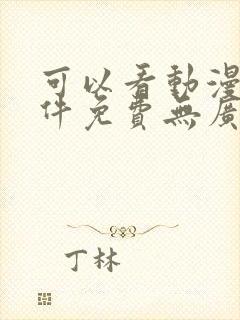 可以看動漫
件免費無廣
丁林